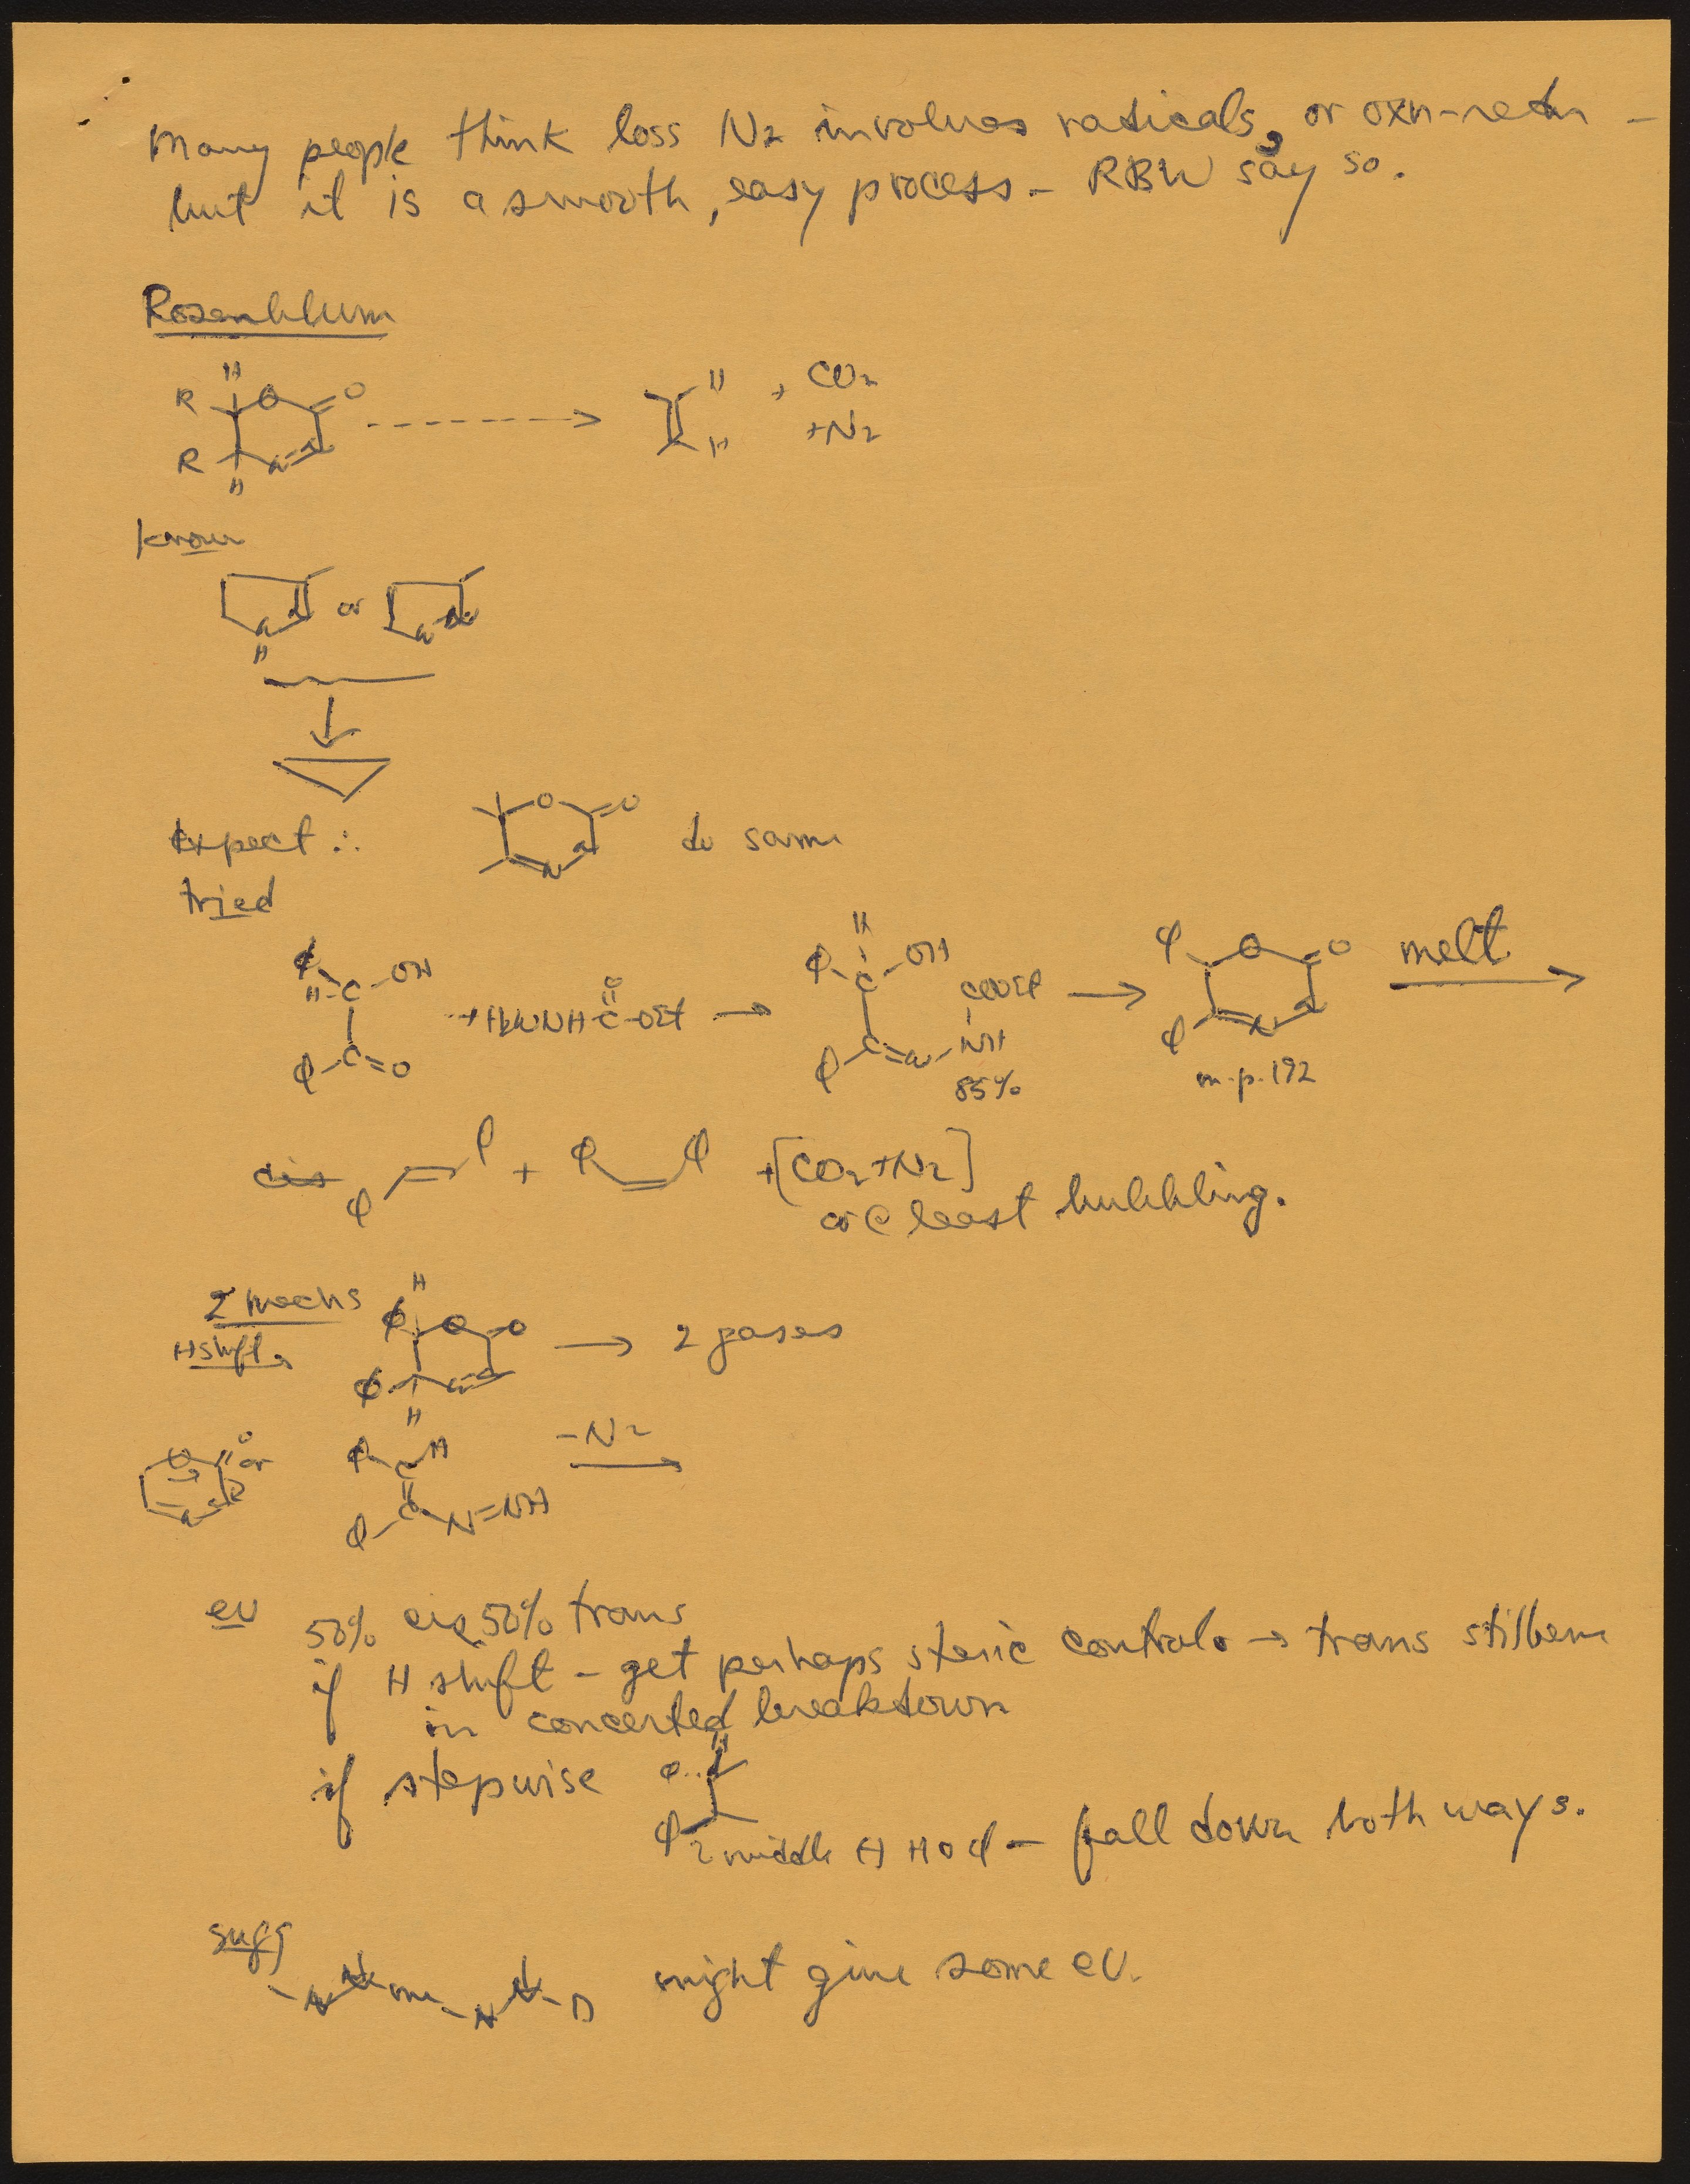 Many people think loss N2 involves radicals, or oxn-redn -
but it is a smooth, easy process - RBW say so.
Rosenblum
H
R O O
R N=N
H
H
H
+ CO2
+N2
known
N N or N N
H
Expect ∴
O O
N N
do same
tried
φ OH
H-C
φ-C=O
+H2NNHC-OEt
O
→
H
φ-C-OH
COOEt
φ-C=N-NH
85%
→
φ O O
φ N N
m.p. 192
melt
cis
φ φ + φ φ + [CO2+N2]
or @ least bubbling.
2 mechs
H shift
H
φ O O
φ N=N
H
→ 2 gases
O O
N N
or
φ C H
φ C N=NH
-N2
ev 50% cis, 50% trans
if H shift - get perhaps steric control → trans stilbene
in concerted breakdown
if stepwise
φ H
φ
middle H H o φ - fall down both ways.
sugg
-N N-me -N N-D might give some ev.